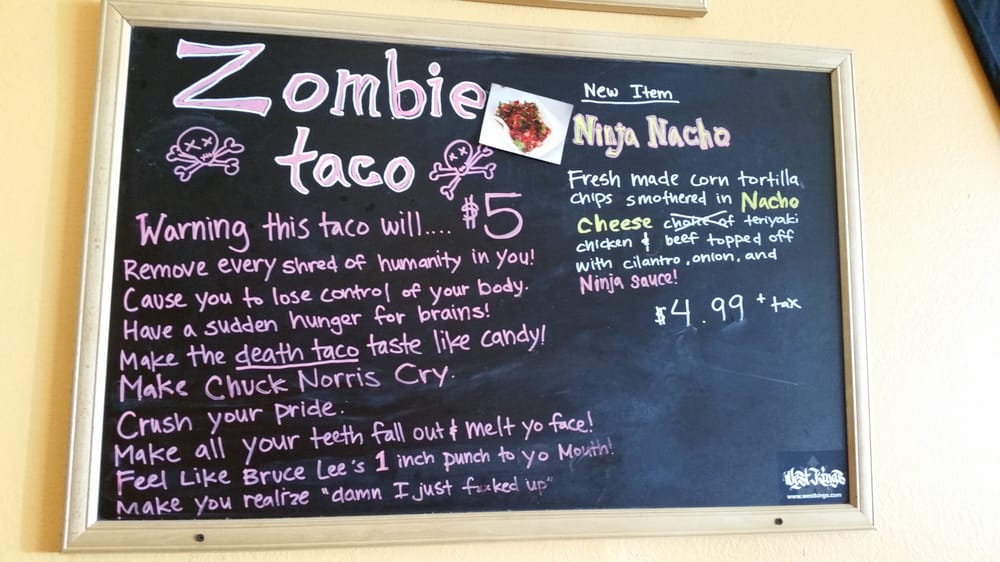 Zombie
taco
$5
Warning this taco will....
Remove every shred of humanity in you!
Cause you to lose control of your body.
Have a sudden hunger for brains!
Make the death taco taste like candy!
Make Chuck Norris Cry.
Crush your pride.
Make all your teeth fall out & melt yo face!
Feel Like Bruce Lee's 1 inch punch to yo Mouth!
Make you realize "damn I just f**ked up"
New Item
Ninja Nacho
Fresh made corn tortilla
chips smothered in Nacho
Cheese choice of teriyaki
chicken & beef topped off
with cilantro, onion, and
Ninja sauce!
$4.99 + tax
West Kings
www.westkings.com